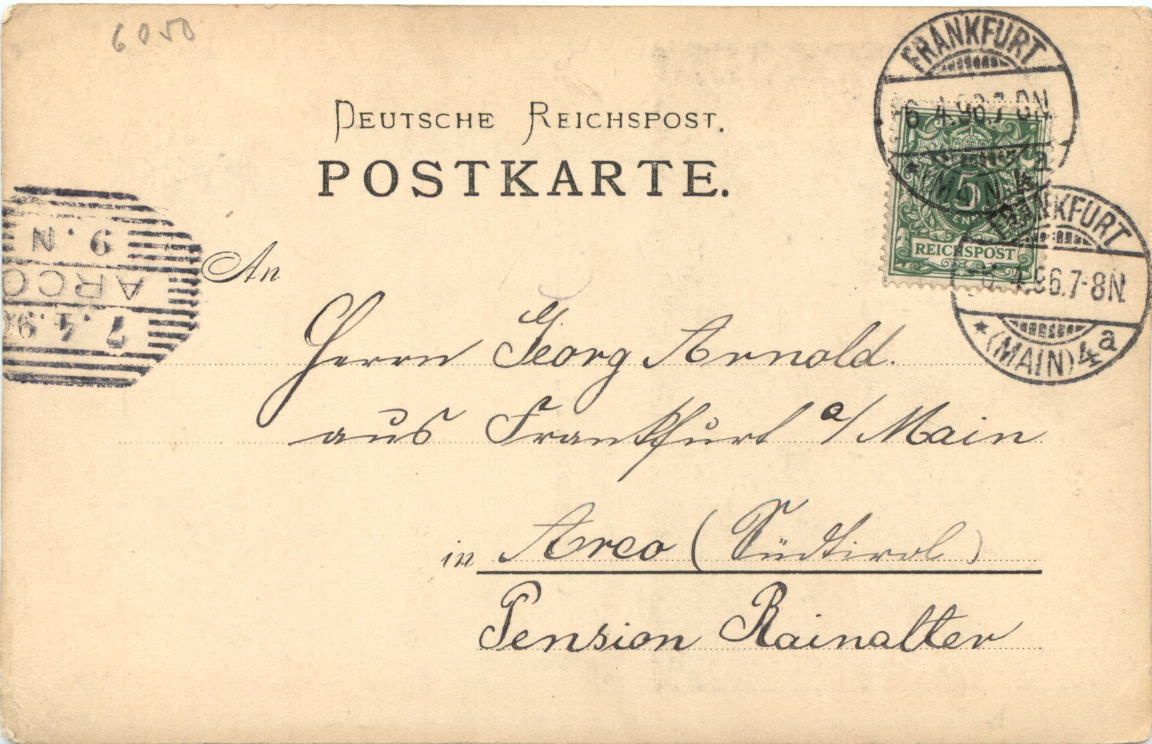 6050
DEUTSCHE REICHSPOST.
POSTKARTE.
FRANKFURT
6.4.96.7-8N.
5
REICHSPOST
FRANKFURT
6.4.96.7-8N.
* (MAIN) 4a
7.4.96
ARCO
9.N
An
Herrn Georg Arnold.
aus Frankfurt a/Main
in Arco (Südtirol)
Pension Rainalter